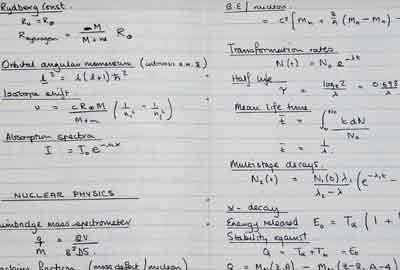 Rydberg Const.
R∞ = R∞
R_hydrogen = M / (M + m) R∞
Orbital angular momentum
l² = l(l+1) ħ²
Isotope shift.
ν = c R∞ M / (M + m) (1/n² - 1/n²)
Absorption spectra
I = I₀ e^-nx
NUCLEAR PHYSICS
mass spectrometer
q/M = 2V / B²DS
fraction (mass defect / nucleon)
B.E / nucleon
= c² [Mn + Z/A (MH - Mn) -
Transformation rates
N(t) = N₀ e^-λt
Half life
τ = log_e 2 / λ = 0.693 / λ
Mean life time
t̄ = ∫₀^N₀ t dN / N₀
t̄ = 1/λ
Multistage decays.
N₂(t) = N₁(0) λ₁ / (λ₂ - λ₁) (e^-λ₁t -
α - decay
Energy released E₀ = Tα (1 +
Stability against
Q = Tα + Tb = E₀
Q = M(Z, A) - M(Z-2, A-4)